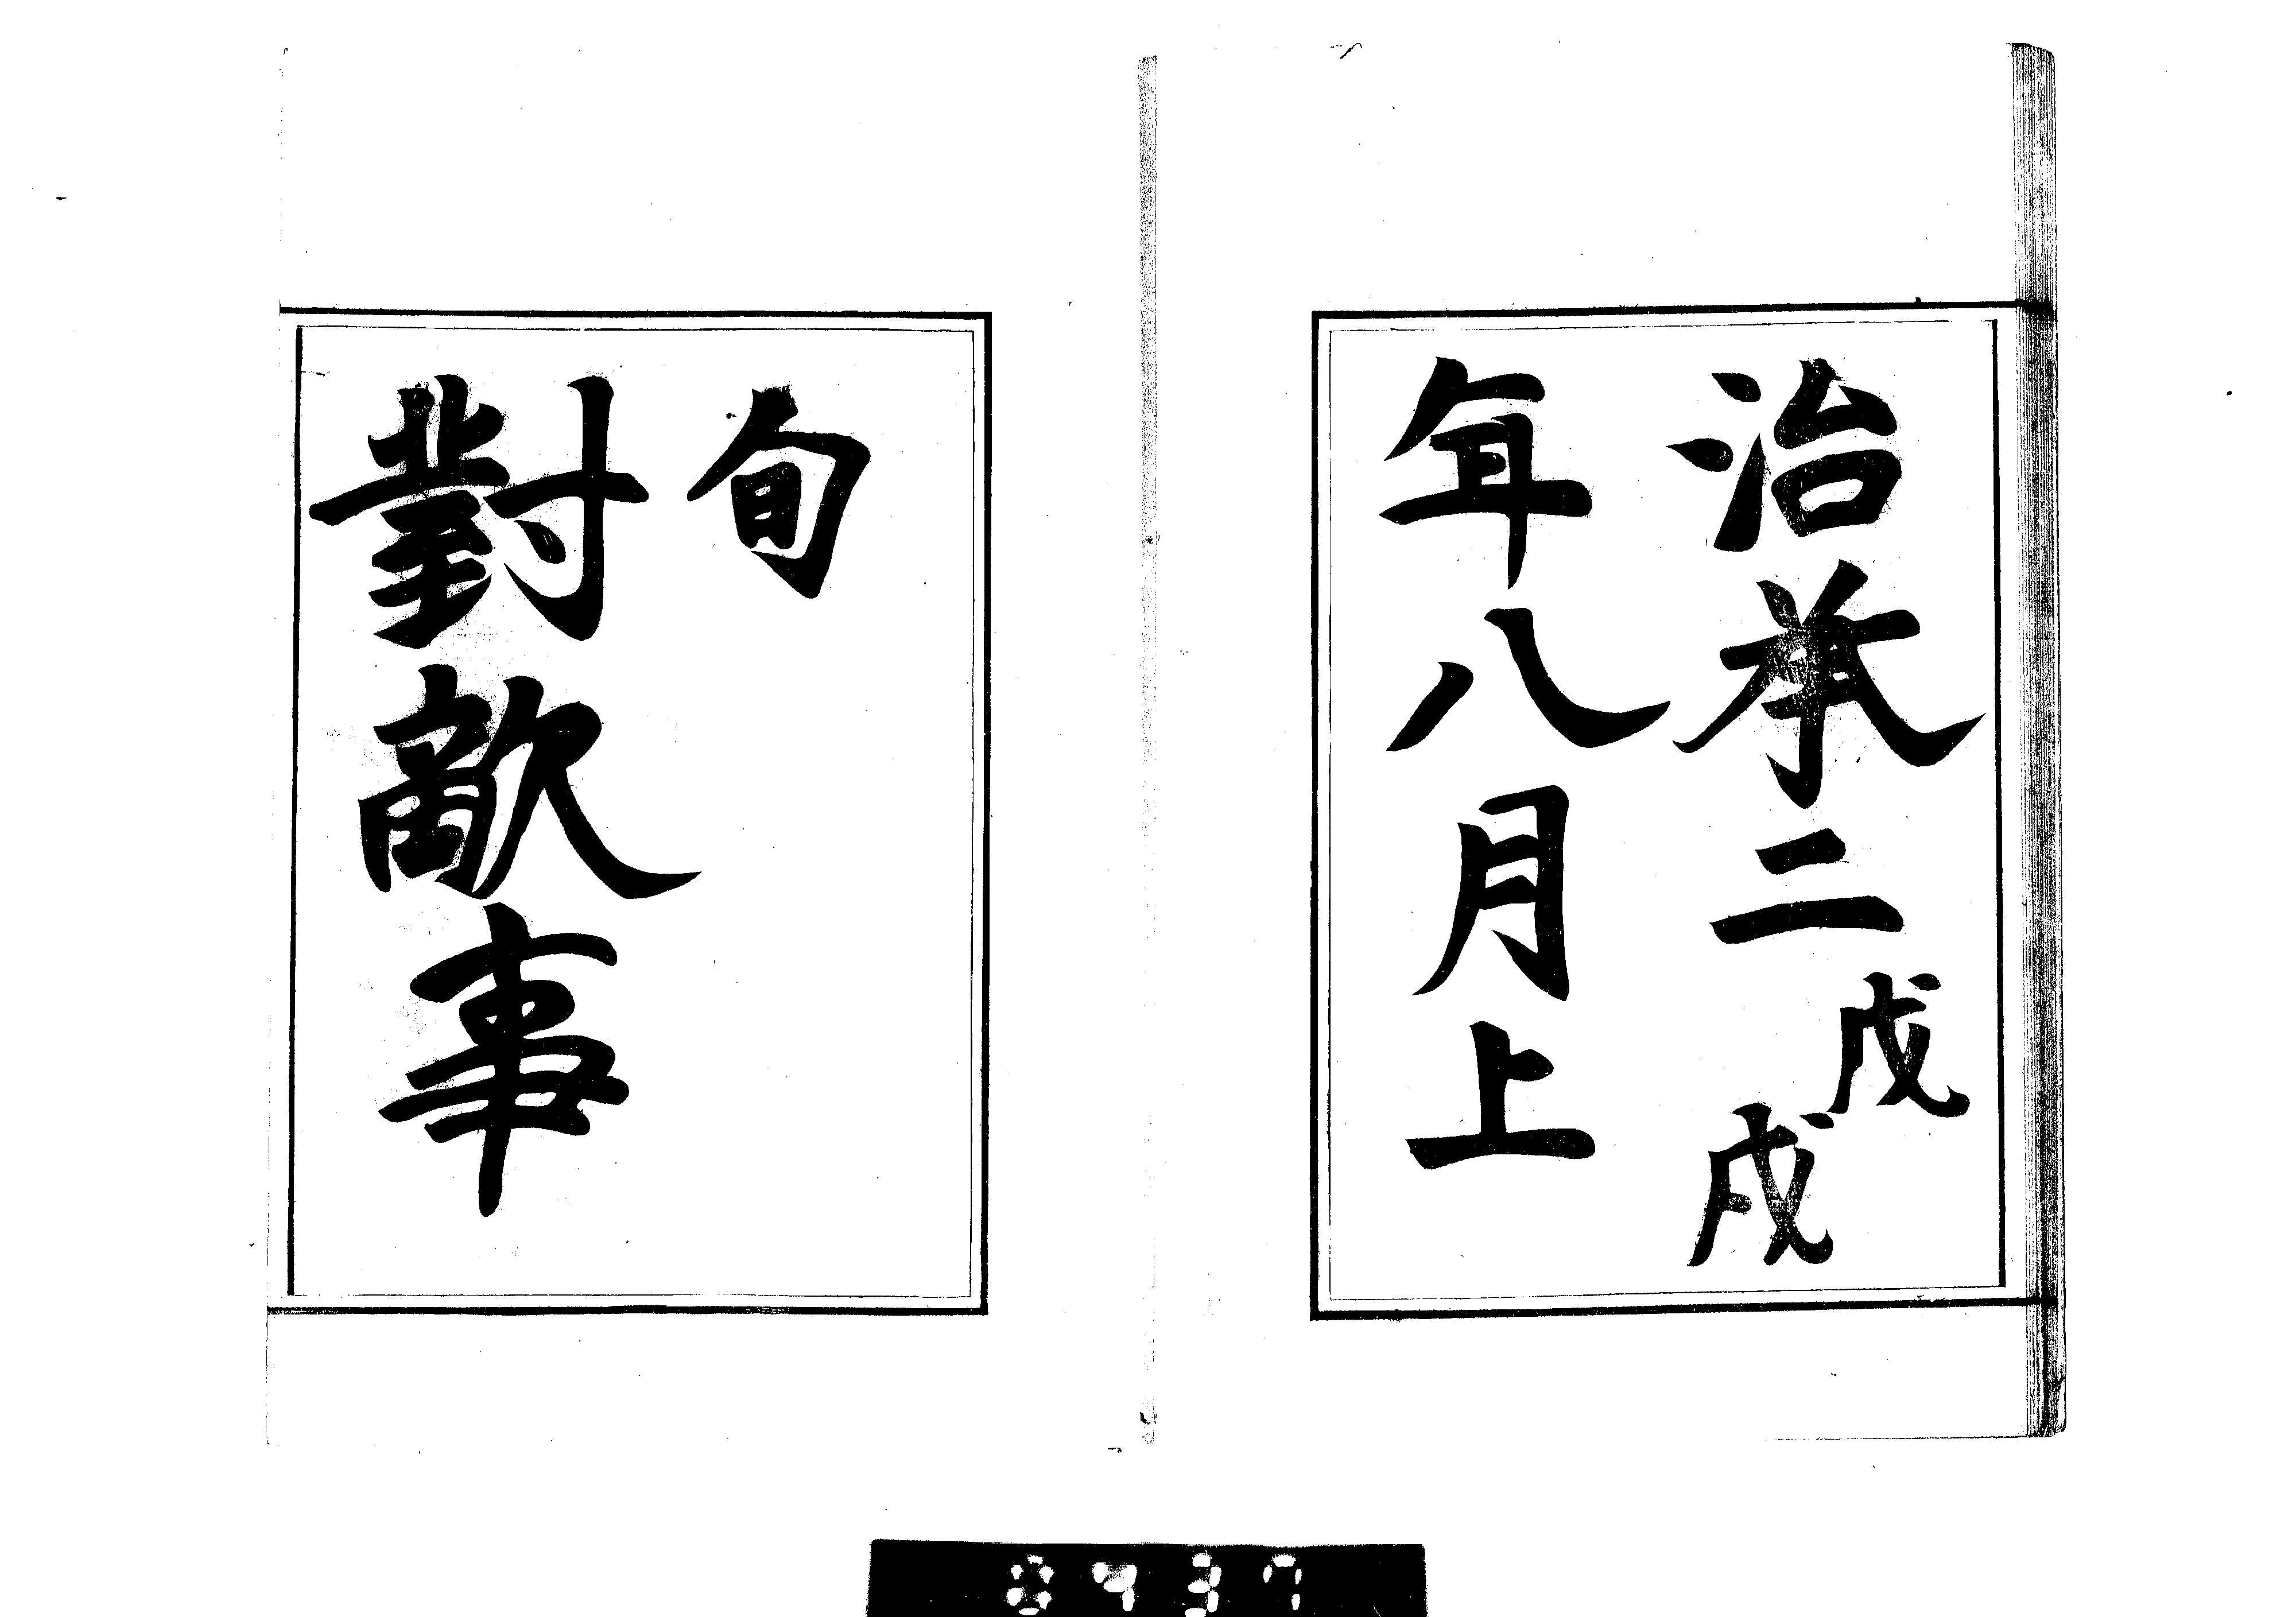 治承二戊戌
年八月上
旬
對敵事